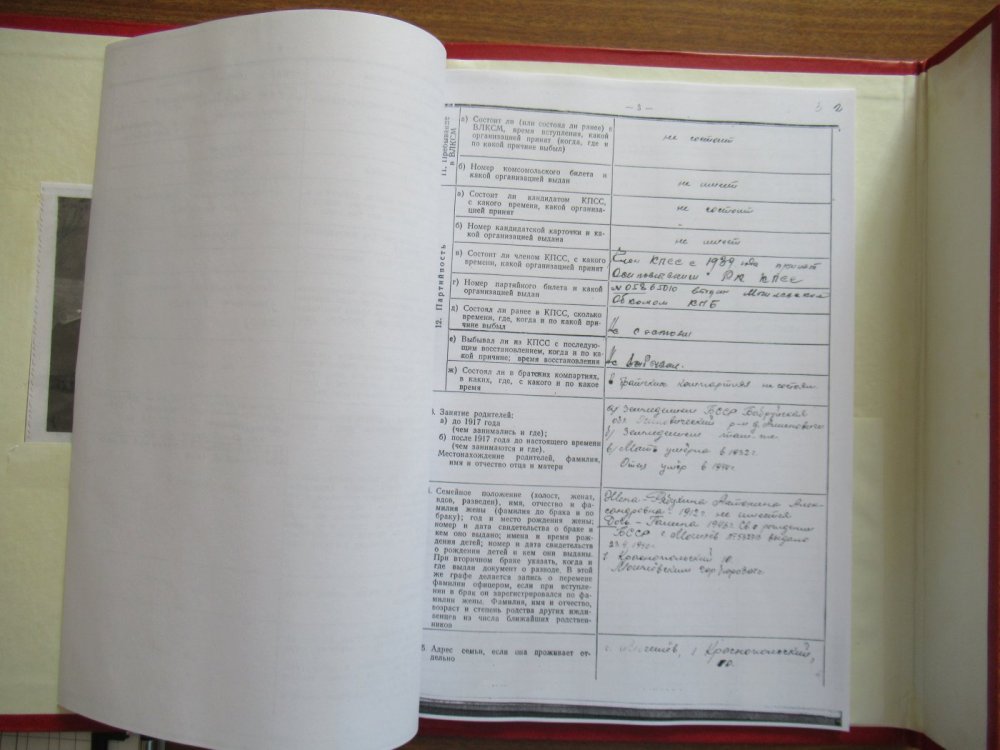 — 3 —
3 2
11. Пребывание в ВЛКСМ
а) Состоит ли (или состоял ли ранее) в
ВЛКСМ, время вступления, какой
организацией принят (когда, где и
по какой причине выбыл)
не состоит
б) Номер комсомольского билета и
какой организацией выдан
не имеет
12. Партийность
а) Состоит ли кандидатом КПСС,
с какого времени, какой организа-
цией принят
не состоит
б) Номер кандидатской карточки и ка-
кой организацией выдана
не имеет
в) Состоит ли членом КПСС, с какого
времени, какой организацией принят
Член КПСС с 1939 года принят
РК КПСС
г) Номер партийного билета и какой
организацией выдан
выдан
Обкомом КПБ
д) Состоял ли ранее в КПСС, сколько
времени, где, когда и по какой при-
чине выбыл
Не состоял
е) Выбывал ли из КПСС с последую-
щим восстановлением, когда и по ка-
кой причине; время восстановления
Не выбывал.
ж) Состоял ли в братских компартиях,
в каких, где, с какого и по какое
время
в братских компартиях не состоял
3. Занятие родителей:
а) до 1917 года
(чем занимались и где);
б) после 1917 года до настоящего времени
(чем занимаются и где).
Местонахождение родителей, фамилия,
имя и отчество отца и матери
а) Земледелием БССР Бобруйская
обл. р-н д.
б) Земледелием там-же
в) Мать умерла в
Отец умер в
Семейное положение (холост, женат,
вдов, разведен), имя, отчество и фа-
милия жены (фамилия до брака и по
браку); год и место рождения жены;
номер и дата свидетельства о браке и
кем оно выдано; имена и время рож-
дения детей; номер и дата свидетельств
о рождении детей и кем они выданы.
При вторичном браке указать, когда и
где выдан документ о разводе. В этой
же графе делается запись о перемене
фамилии офицером, если при вступле-
нии в брак он зарегистрировался по фа-
милии жены. Фамилия, имя и отчество,
возраст и степень родства других ижди-
венцев из числа ближайших родствен-
ников
Жена - Антонина Алек-
сандровна 1912г. не имеется
Дочь - Галина
БССР г. Могилев выдано
5. Адрес семьи, если она проживает от-
дельно
Краснопольский,